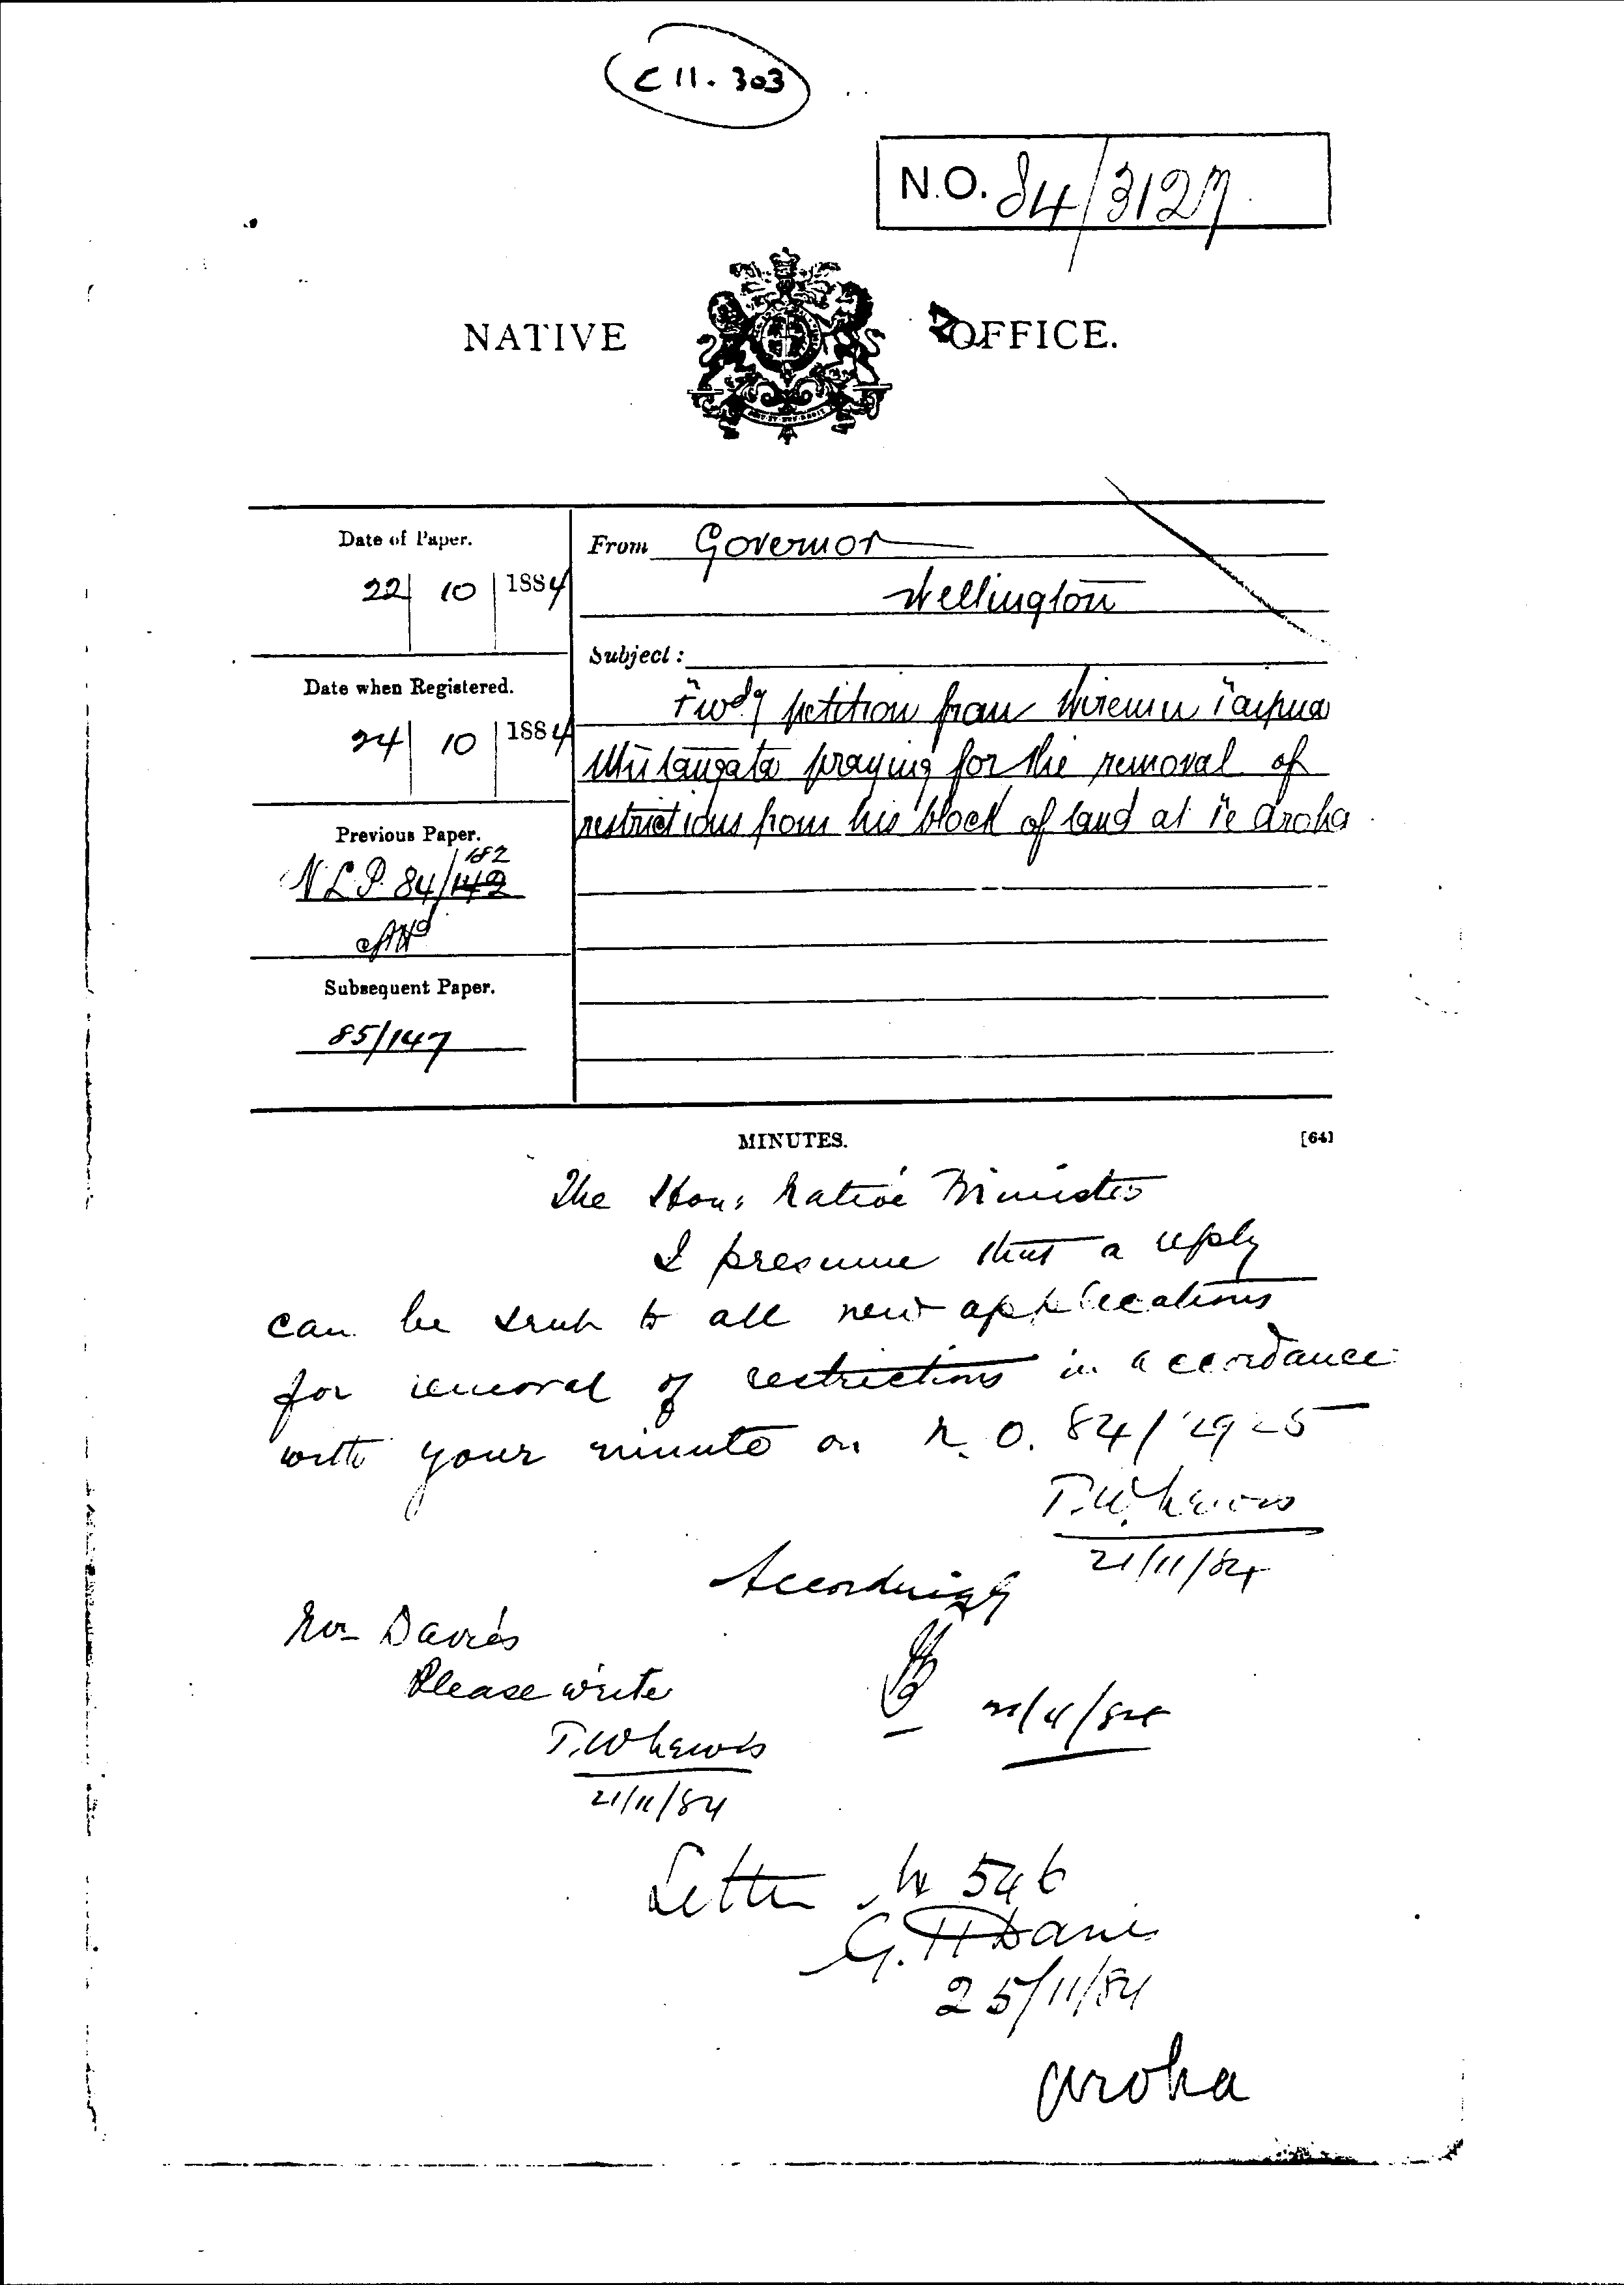 C 11. 303
N.O. 84/3127
NATIVE OFFICE.
Date of Paper.
22 10 1884
From Governor
Wellington
Date when Registered.
24 10 1884
Subject:
Fwdg petition from Wiremu Taipua
praying for the removal of
restrictions from his block of land at Te Aroha
Previous Paper.
182
N L P. 84/142
Subsequent Paper.
85/147
MINUTES. [64]
The Hon: Native Minister
I presume that a reply
can be sent to all new applications
for removal of restrictions in accordance
with your minute on N.O. 84/2925
T.W. Lewis
21/11/84
Accordingly
21/11/84
Mr Davies
Please write
T.W Lewis
21/11/84
Letter 546
G. H Davies
25/11/84
Aroha